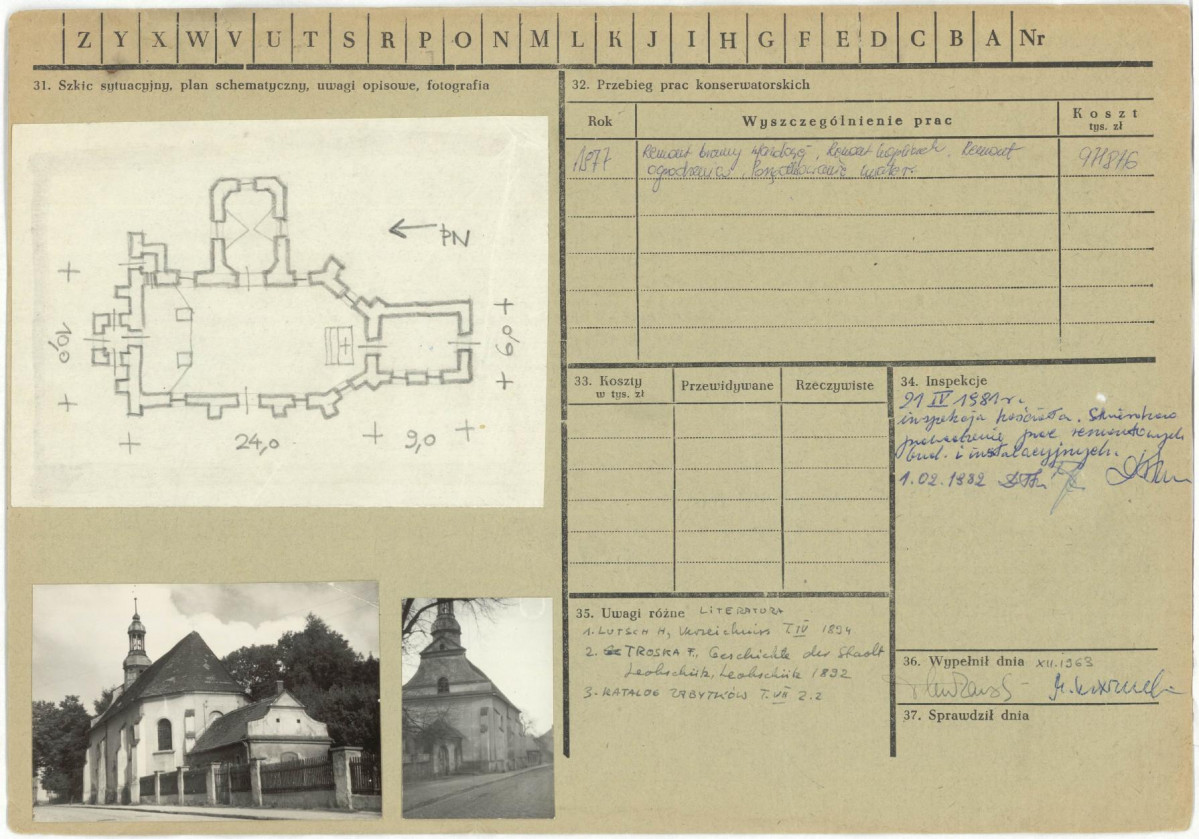 Z Y X W V U T S R P O N M L K J I H G F E D C B A Nr
31. Szkic sytuacyjny, plan schematyczny, uwagi opisowe, fotografia
PN
10,0
6,0
24,0
9,0
32. Przebieg prac konserwatorskich
Rok
Wyszczególnienie prac
Koszt
tys. zł
1977
Remont bramy, Remont, Remont
ogrodzenia, Porządkowanie
971876
33. Koszty
w tys. zł
Przewidywane
Rzeczywiste
34. Inspekcje
21 IV 1981 r.
inspekcja kościoła.
prowadzenie prac remontowych
bud. i instalacyjnych.
1.02.1982
35. Uwagi różne LITERATURA
1. LUTSCH H, Verzeichniss T. IV 1894
2. TROSKA F., Geschichte der Stadt
Leobschütz, Leobschütz 1892
3. KATALOG ZABYTKÓW T. VII Z. 2
36. Wypełnił dnia XII.1963
37. Sprawdził dnia